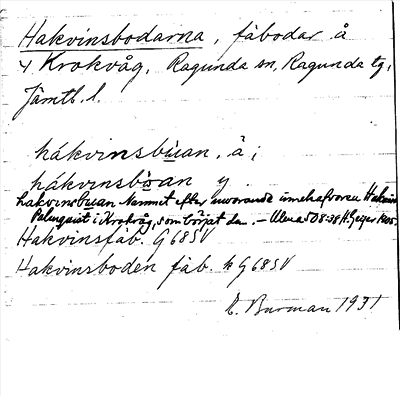 Hakvinsbodarna, fäbodar å
4 Krokvåg, Ragunda sn, Ragunda tg,
Jämtl. l.
hákvinsbu̇an, å i
hákvinsbɷ̇an y
hakvinsbuan Namnet efter innehafvaren Hakvin
Palmqvist i Krokvåg, som börjat den. – Ulma 508:38 H. Geijer 1905.
Hakvinsfäb. G 68 SV
Hakvinsboden fäb. k G 68 SV
E. Burman 1931